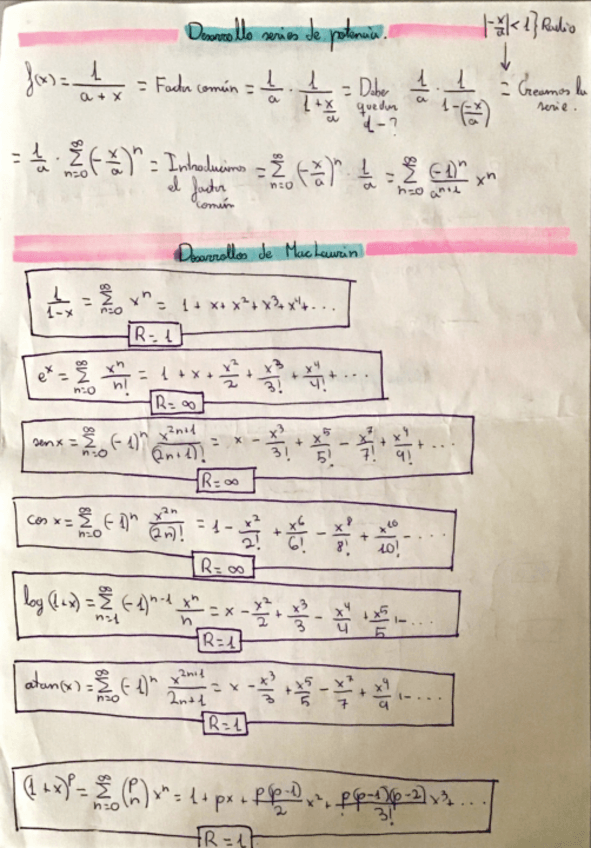 Desarrollo series de potencia.
|-x/a| < 1} Radio
↓
f(x) = 1/(a + x) = Factor común = 1/a · 1/(1 + x/a) = Debe quedar 1 - ? 1/a · 1/(1 - (-x/a)) = Creamos la serie.
= 1/a · ∑_{n=0}^{∞} (-x/a)^n = Introducimos el factor común = ∑_{n=0}^{∞} (-x/a)^n · 1/a = ∑_{n=0}^{∞} (-1)^n/a^{n+1} x^n
Desarrollos de MacLaurin
1/(1-x) = ∑_{n=0}^{∞} x^n = 1 + x + x^2 + x^3 + x^4 + ...
R = 1
e^x = ∑_{n=0}^{∞} x^n/n! = 1 + x + x^2/2 + x^3/3! + x^4/4! + ...
R = ∞
sen x = ∑_{n=0}^{∞} (-1)^n x^{2n+1}/(2n+1)! = x - x^3/3! + x^5/5! - x^7/7! + x^9/9! + ...
R = ∞
cos x = ∑_{n=0}^{∞} (-1)^n x^{2n}/(2n)! = 1 - x^2/2! + x^6/6! - x^8/8! + x^10/10! - ...
R = ∞
log (1+x) = ∑_{n=1}^{∞} (-1)^{n-1} x^n/n = x - x^2/2 + x^3/3 - x^4/4 + x^5/5 - ...
R = 1
atan(x) = ∑_{n=0}^{∞} (-1)^n x^{2n+1}/(2n+1) = x - x^3/3 + x^5/5 - x^7/7 + x^9/9 - ...
R = 1
(1 + x)^p = ∑_{n=0}^{∞} (p n) x^n = 1 + px + p(p-1)/2 x^2 + p(p-1)(p-2)/3! x^3 + ...
R = 1